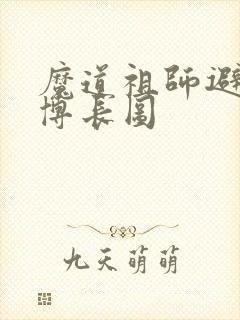 魔道祖师避
博长图
九天萌萌